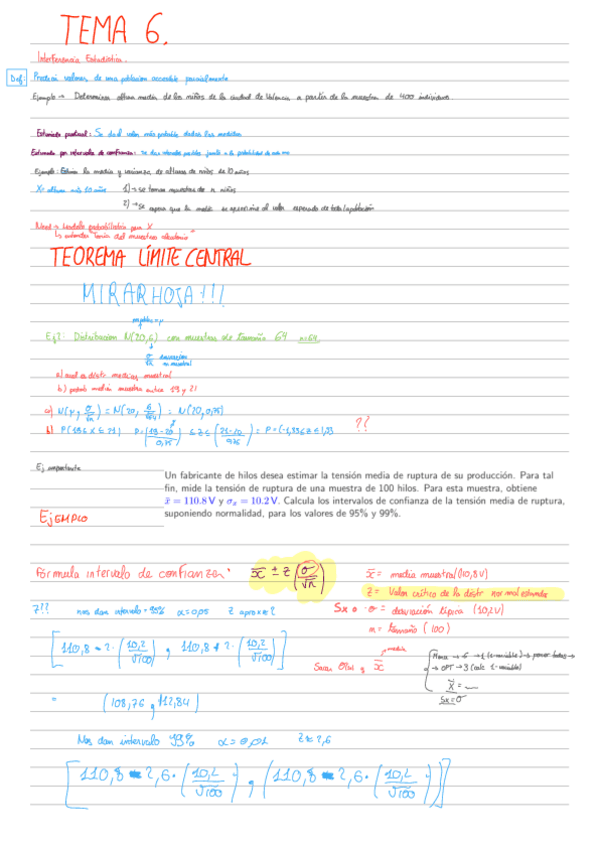 TEMA 6.
Interferencia Estadística.
Def: Predecir valores de una población accesible parcialmente
Ejemplo → Determinar altura media de los niños de la ciudad de Valencia a partir de la muestra de 400 individuos.
Estimación puntual: Se da el valor más probable dados las medidas
Estimación por intervalos de confianza: Se dan intervalos junto a la probabilidad de
Ejemplo: Estima la media y varianza de alturas de niños de 10 años
X: altura niños 10 años 1) → se toman muestras de n niños
2) → Se espera que la media se aproxime al valor esperado de toda la población
Neces → modelo probabilístico para X
↳ "Teoría del muestreo aleatorio"
TEOREMA LÍMITE CENTRAL
MIRAR HOJA!!!
Ej2: Distribución N(20,6) con muestra de tamaño 64 n=64
σ desviación
a) cual es distr medias muestral
b) probab media muestra entre 19 y 21
a) N(μ, σ/√n) = N(20, 6/√64) = N(20, 0,75)
b) P(19 ≤ x ≤ 21) P = (19-20/0,75) ≤ z ≤ (21-20/0,75) = P = (-1,33 ≤ z ≤ 1,33 ??
Ej importante
Un fabricante de hilos desea estimar la tensión media de ruptura de su producción. Para tal
fin, mide la tensión de ruptura de una muestra de 100 hilos. Para esta muestra, obtiene
x̄ = 110.8 V y σx = 10.2 V. Calcula los intervalos de confianza de la tensión media de ruptura,
suponiendo normalidad, para los valores de 95% y 99%.
EJEMPLO
Fórmula intervalo de confianza: x̄ ± z (σ/√n)
x̄ = media muestral (110,8V)
z = Valor crítico de la distr normal estandar
Sx o σ = desviación típica (10,2V)
n = tamaño (100)
z?? nos dan intervalo 95% α=0,05 z aprox = 2
[110,8 - 2·(10,2/√100), 110,8 + 2·(10,2/√100)]
Sacar y x̄ → media
Menu → 6 → 1 (1-variable) → poner todos →
→ OPT → 3 (calc 1-variable)
x̄ =
Sx=σ
= (108,76, 112,84)
Nos dan intervalo 99% α=0,01 z≈2,6
[110,8 - 2,6·(10,2/√100), (110,8 - 2,6·(10,2/√100)]